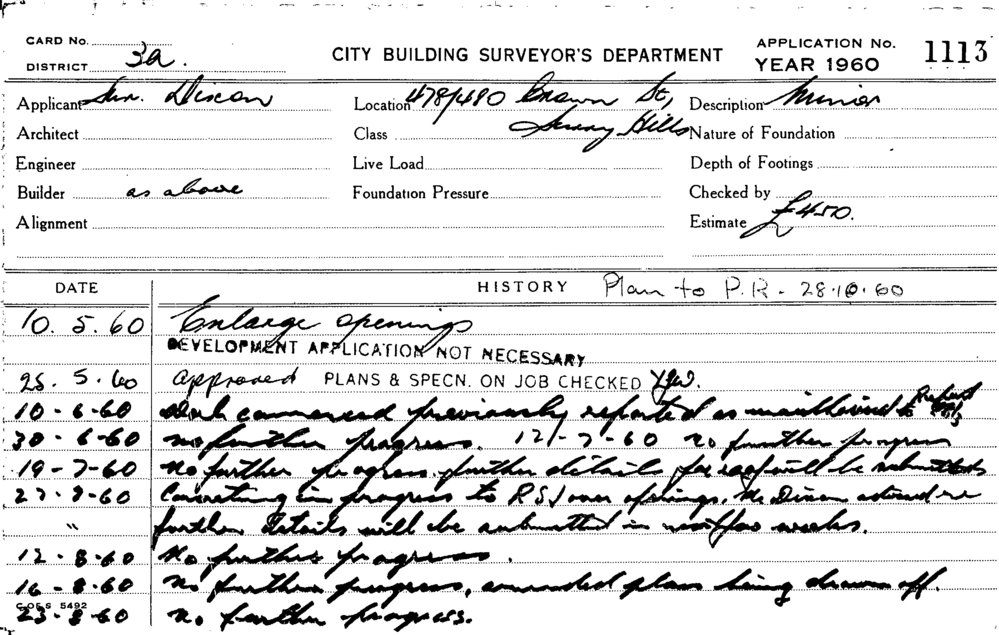 CARD No.
DISTRICT 3a.
CITY BUILDING SURVEYOR'S DEPARTMENT
APPLICATION No. 1113
YEAR 1960
Applicant Dixon
Location 478/480 Crown St,
Surry Hills
Description Minior
Architect
Class
Nature of Foundation
Engineer
Live Load
Depth of Footings
Builder as above
Foundation Pressure
Checked by
Alignment
Estimate £450.
DATE
HISTORY Plan to P.R - 28.10.60
10. 5. 60 Enlarge openings
DEVELOPMENT APPLICATION NOT NECESSARY
25. 5. 60 approved PLANS & SPECN. ON JOB CHECKED
10-6-60 Work commenced previously reported as
30-6-60 no further progress. 12-7-60 no further progress
19-7-60 no further progress. further details for roof will be submitted
27-7-60 in progress to R.S.J over openings. Mr Dixon re
" further details will be submitted in weeks.
12-8-60 No further progress.
16-8-60 No further progress, amended plans being drawn off.
23-8-60 no further progress.
C OF S 5492